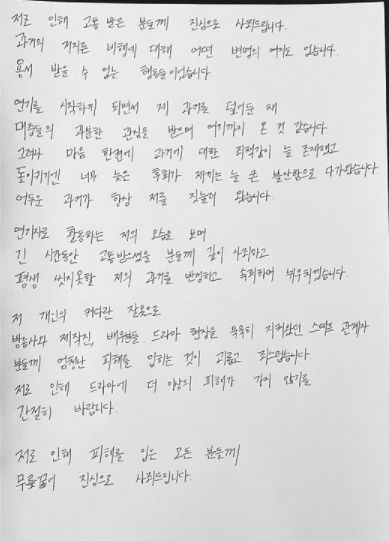 저로 인해 고통 받은 분들께 진심으로 사죄드립니다.
과거의 저지른 비행에 대해 어떤 변명의 여지도 없습니다.
용서 받을 수 없는 행동들이었습니다.
연기를 시작하게 되면서 제 과거를 덮어둔 채
대중들의 과분한 관심을 받으며 여기까지 온 것 같습니다.
그러나 마음 한편에 과거에 대한 죄책감이 늘 존재했고
돌이키기엔 너무 늦은 후회가 저에게는 늘 큰 불안함으로 다가왔습니다.
어두운 과거가 항상 저를 짓눌러 왔습니다.
연기자로 활동하는 저의 모습을 보며
긴 시간동안 고통받으셨을 분들께 깊이 사죄하고
평생 씻지못할 저의 과거를 반성하고 속죄하며 뉘우치겠습니다.
저 개인의 커다란 잘못으로
방송사와 제작진, 배우분들, 드라마 현장을 묵묵히 지켜왔던 스태프 관계자
분들께 엄청난 피해를 입히는 것이 괴롭고 죄스럽습니다.
저로 인해 드라마에 더 이상의 피해가 가지 않기를
간절히 바랍니다.
저로 인해 피해를 입은 모든 분들께
무릎꿇어 진심으로 사죄드립니다.